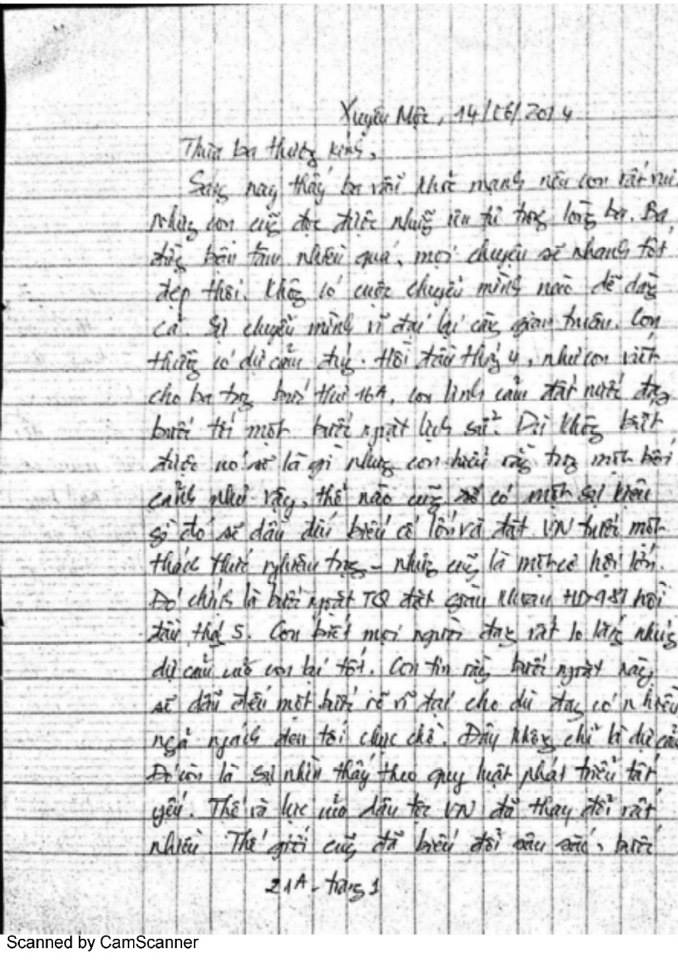 Xuyên Mộc, 14/06/2014
Thưa ba thương kính,
Sáng nay thấy ba vẫn khỏe mạnh nên con rất vui
nhưng con cũng đọc được những ưu tư trong lòng ba. Ba
đừng bận tâm nhiều quá, mọi chuyện sẽ nhanh tốt
đẹp thôi. Không có cuộc chuyển mình nào dễ dàng
cả. Sự chuyển mình vĩ đại lại càng gian truân. Con
thường có dự cảm đúng. Hồi đầu tháng 4, như con viết
cho ba trong bức thư 16A, con linh cảm đất nước đang
bước tới một bước ngoặt lịch sử. Dù không biết
được nó sẽ là gì nhưng con hiểu rằng trong một bối
cảnh như vậy, thế nào cũng sẽ có một sự kiện
gì đó sẽ dẫn đến biến cố lớn và đặt VN trước một
thách thức nghiêm trọng – nhưng cũng là một cơ hội lớn.
Đó chính là bước ngoặt TQ đặt giàn khoan HD-981 hồi
đầu tháng 5. Con biết mọi người đang rất lo lắng nhưng
dự cảm của con lại tốt. Con tin rằng bước ngoặt này
sẽ dẫn đến một bước rẽ vĩ đại cho dù đang có nhiều
ngả ngách đen tối chực chờ. Đây không chỉ là dự cảm
Đó còn là sự nhìn thấy theo quy luật phát triển tất
yếu. Thế và lực của dân tộc VN đã thay đổi rất
nhiều. Thế giới cũng đã biến đổi sâu sắc, bước
21A - trang 1
Scanned by CamScanner